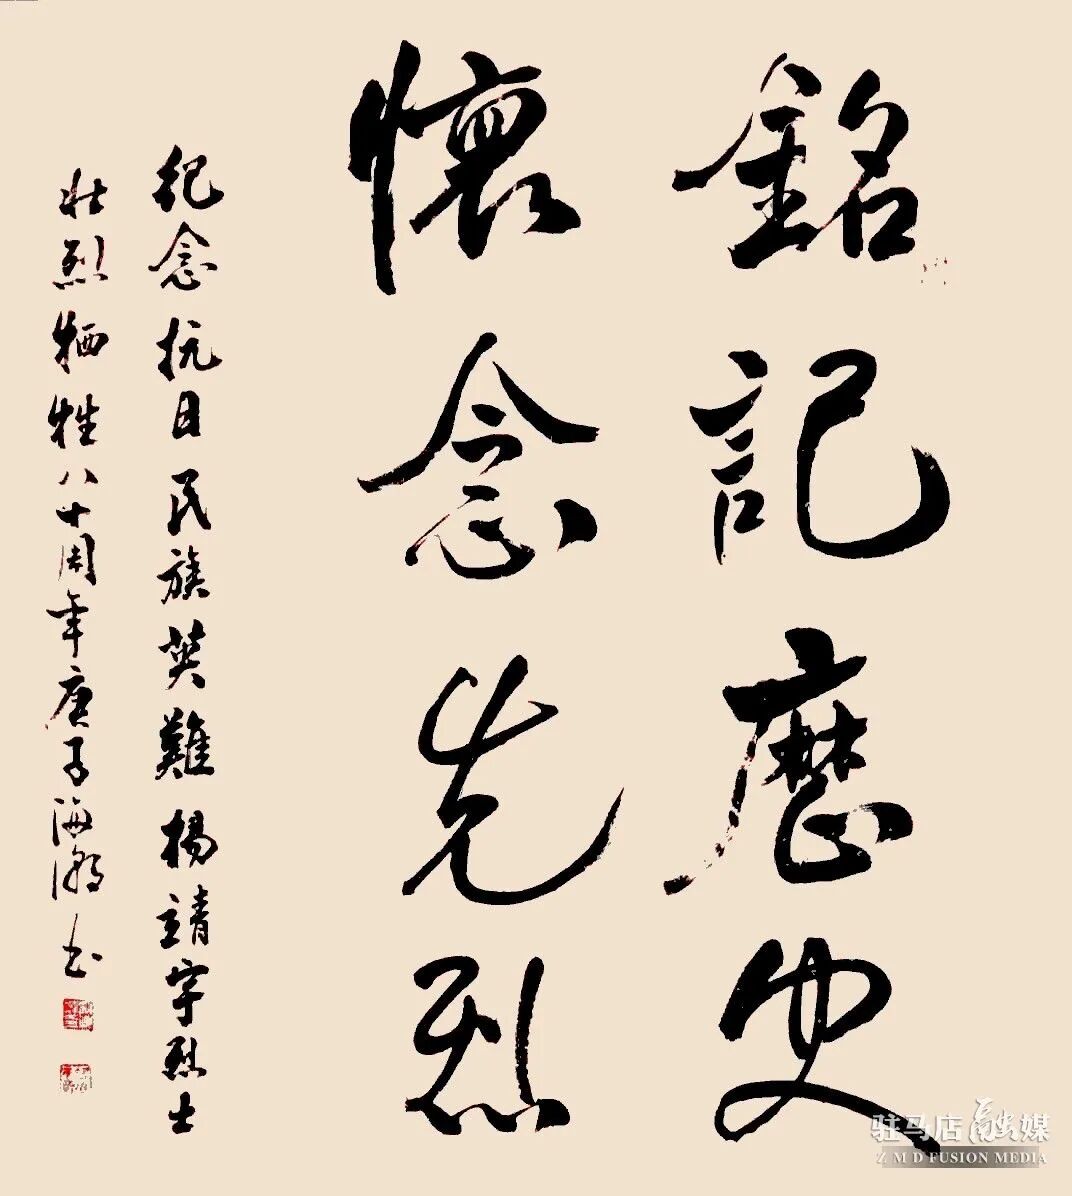 銘記歷史
懷念先烈
紀念抗日民族英難楊靖宇烈士
壮烈牺牲八十周年庚子海潮书
驻马店融媒
Z M D FUSION MEDIA